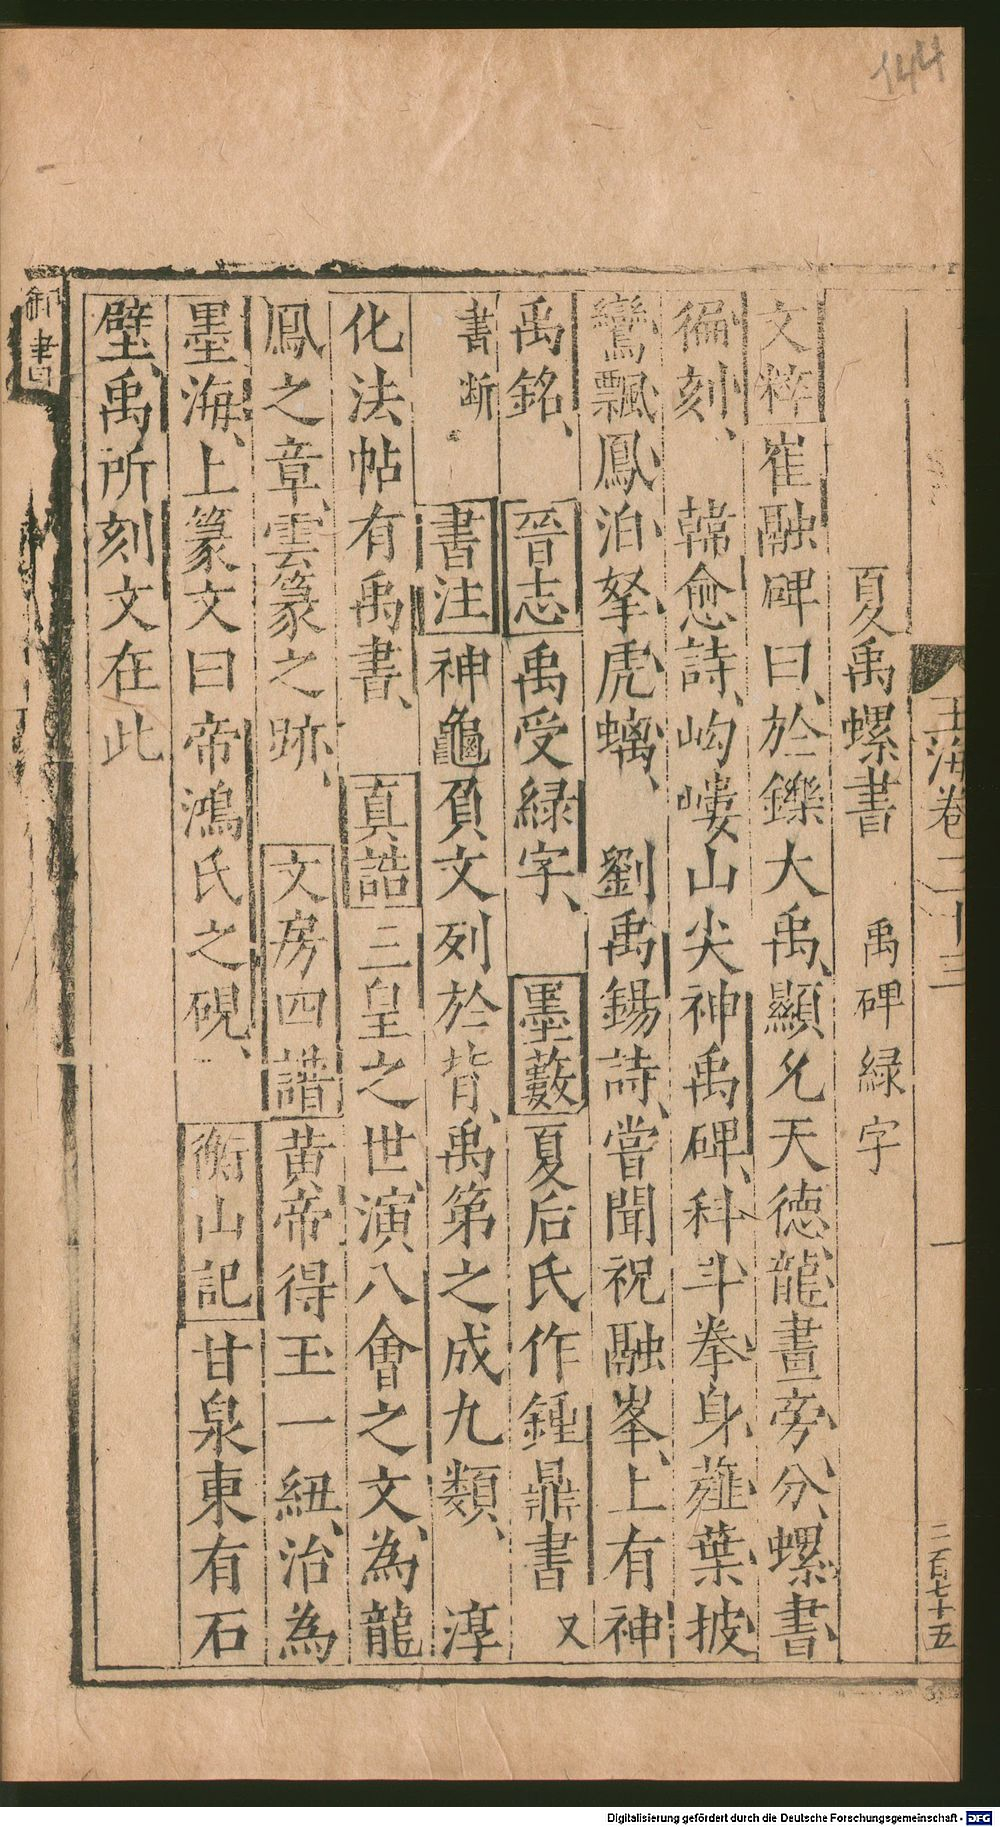 144
玉海卷二十三
二百七十五
夏禹螺書 禹碑 綠字
文粹崔融碑曰、於鑠大禹、顯允天德、龍畫旁分、螺書
徧刻、 韓愈詩、岣嶁山尖神禹碑、科斗拳身薤葉披
鸞飄鳳泊拏虎螭、 劉禹錫詩、嘗聞祝融峯、上有神
禹銘、 晉志禹受綠字、 墨藪夏后氏作鍾鼎書 又
書斷 書注神龜負文列於背、禹第之成九類、 淳
化法帖有禹書、 真誥三皇之世、演八會之文、為龍
鳳之章、雲篆之跡、 文房四譜黃帝得玉一紐、治為
墨海、上篆文曰帝鴻氏之硯、 衡山記甘泉東有石
壁、禹所刻文在此
御書
Digitalisierung gefördert durch die Deutsche Forschungsgemeinschaft - DFG